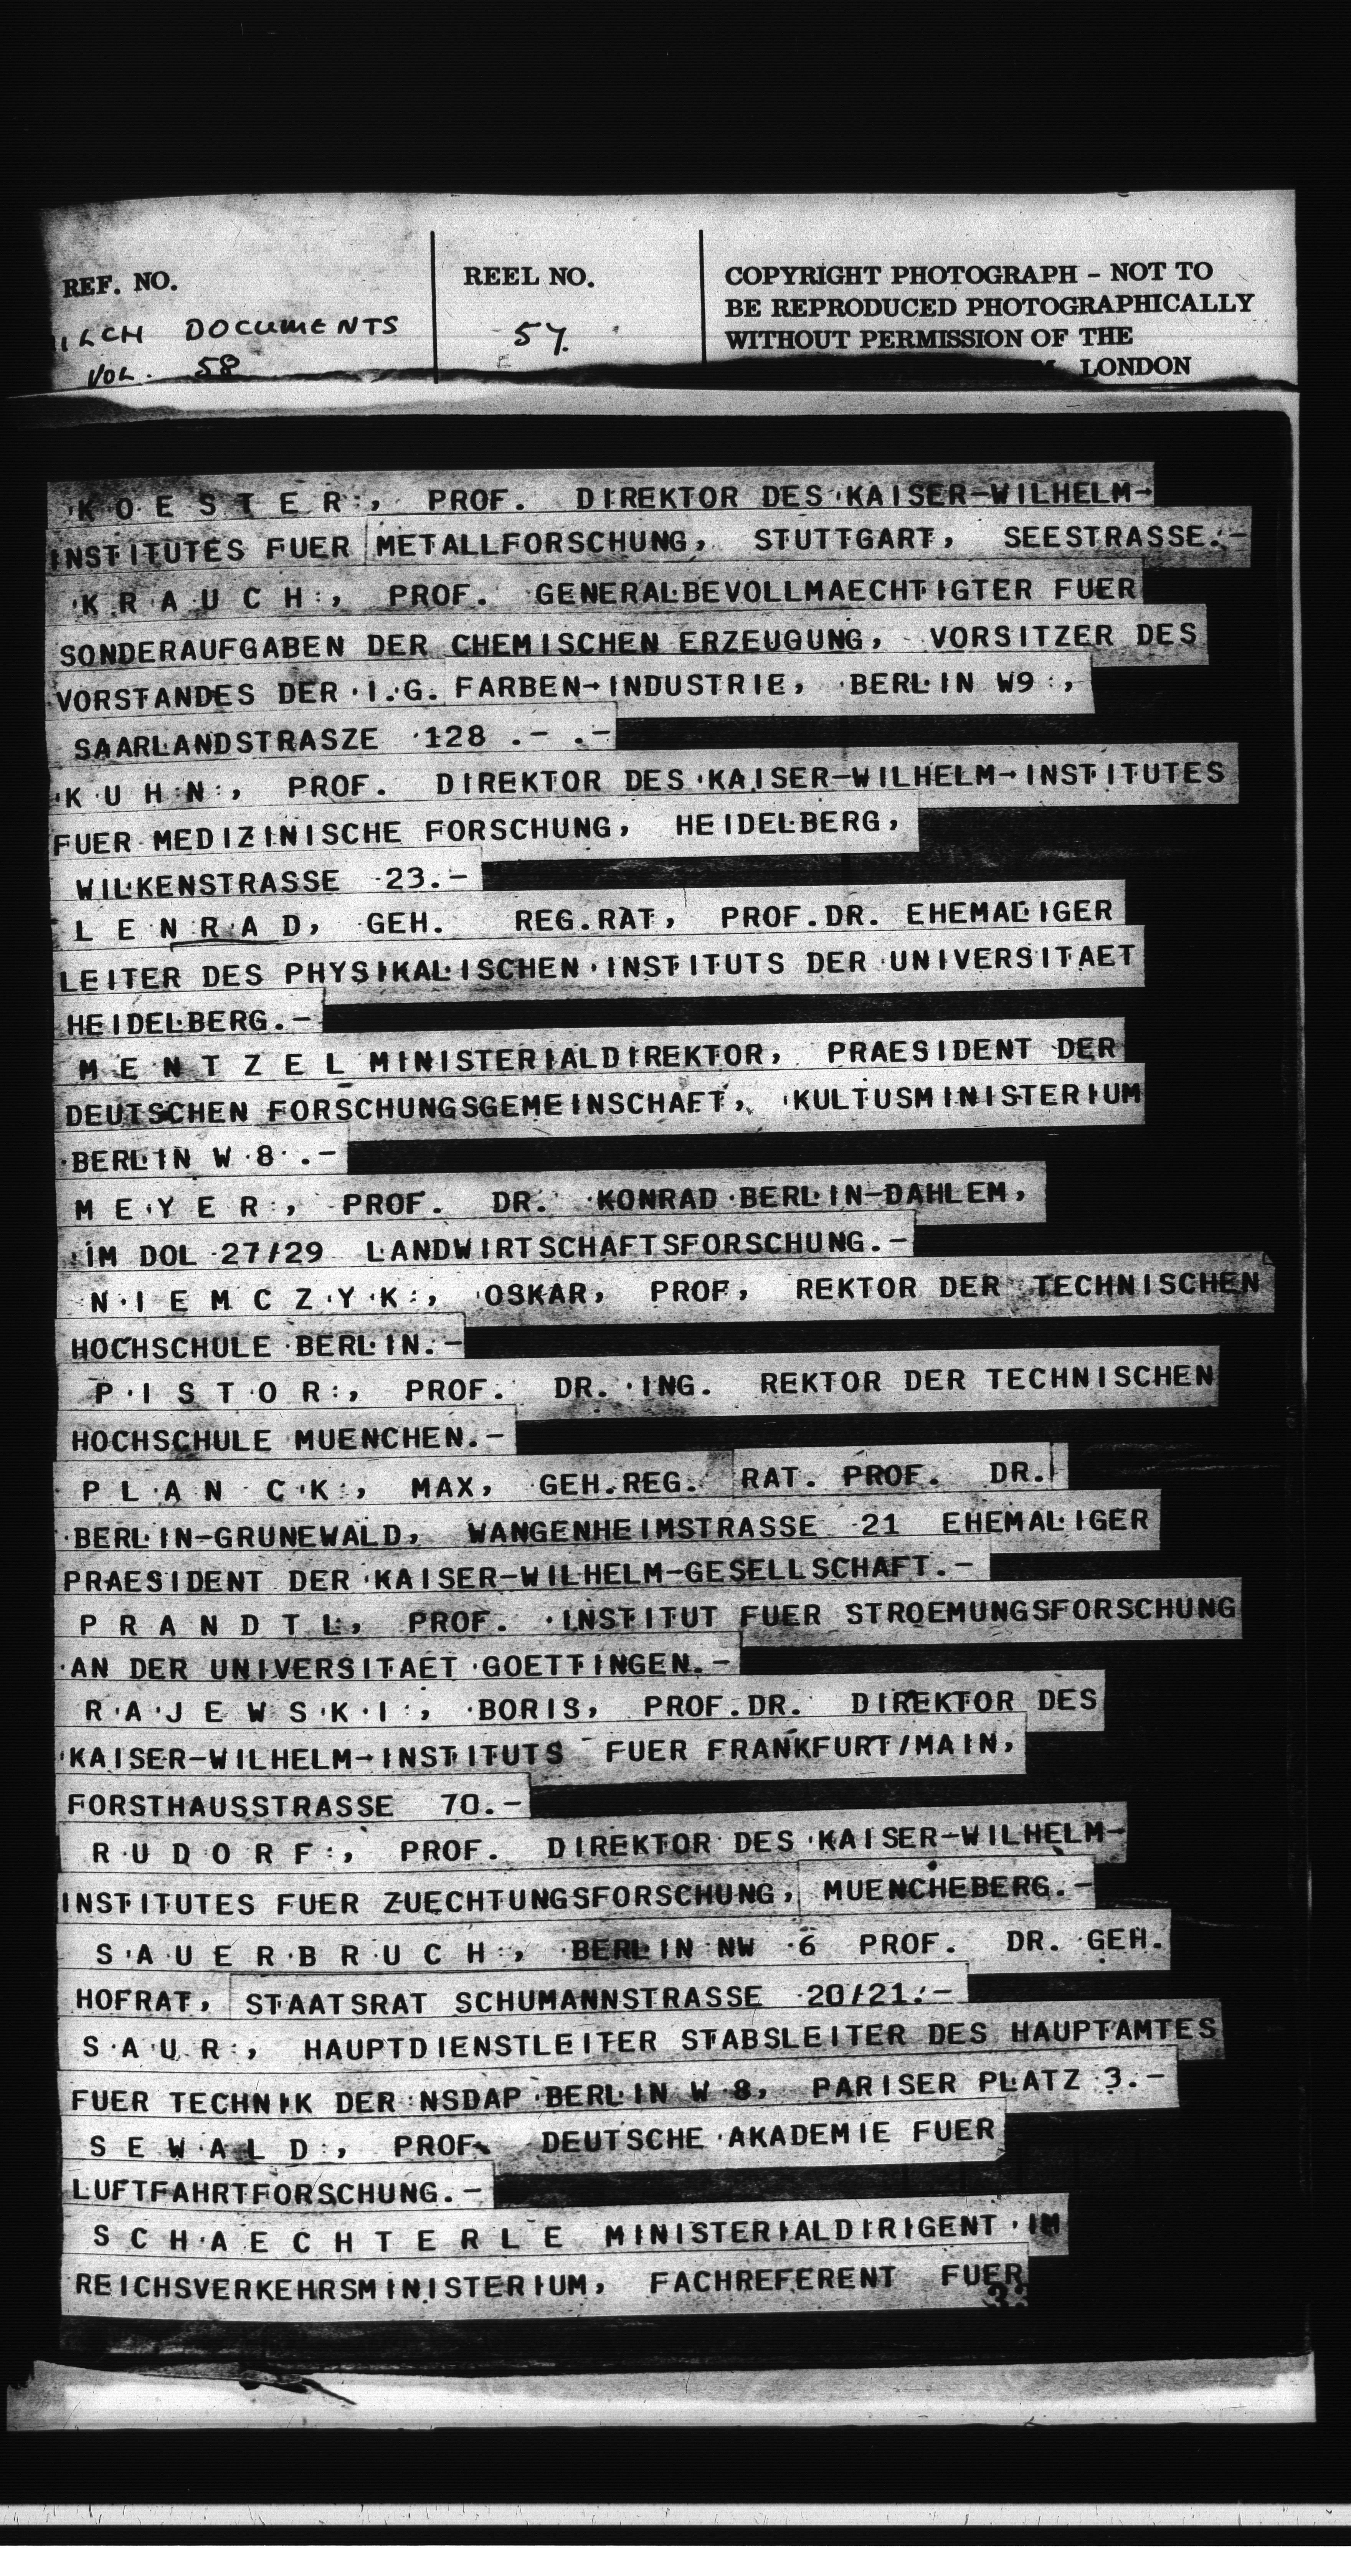 REF. NO.
REEL NO.
COPYRIGHT PHOTOGRAPH - NOT TO
BE REPRODUCED PHOTOGRAPHICALLY
WITHOUT PERMISSION OF THE
LONDON
DOCUMENTS
VOL. 58
57.
K O E S T E R , PROF. DIREKTOR DES KAISER-WILHELM-
INSTITUTES FUER METALLFORSCHUNG, STUTTGART, SEESTRASSE.-
K R A U C H , PROF. GENERALBEVOLLMAECHTIGTER FUER
SONDERAUFGABEN DER CHEMISCHEN ERZEUGUNG, VORSITZER DES
VORSTANDES DER I.G. FARBEN-INDUSTRIE, BERLIN W9 ,
SAARLANDSTRASZE 128 .- .-
K U H N , PROF. DIREKTOR DES KAISER-WILHELM-INSTITUTES
FUER MEDIZINISCHE FORSCHUNG, HEIDELBERG,
WILKENSTRASSE 23.-
L E N R A D, GEH. REG.RAT, PROF.DR. EHEMALIGER
LEITER DES PHYSIKALISCHEN INSTITUTS DER UNIVERSITAET
HEIDELBERG.-
M E N T Z E L MINISTERIALDIREKTOR, PRAESIDENT DER
DEUTSCHEN FORSCHUNGSGEMEINSCHAFT, KULTUSMINISTERIUM
BERLIN W 8 .-
M E Y E R , PROF. DR. KONRAD BERLIN-DAHLEM,
IM DOL 27/29 LANDWIRTSCHAFTSFORSCHUNG.-
N I E M C Z Y K , OSKAR, PROF, REKTOR DER TECHNISCHEN
HOCHSCHULE BERLIN.-
P I S T O R , PROF. DR. ING. REKTOR DER TECHNISCHEN
HOCHSCHULE MUENCHEN.-
P L A N C K , MAX, GEH.REG. RAT. PROF. DR.
BERLIN-GRUNEWALD, WANGENHEIMSTRASSE 21 EHEMALIGER
PRAESIDENT DER KAISER-WILHELM-GESELLSCHAFT.-
P R A N D T L, PROF. INSTITUT FUER STROEMUNGSFORSCHUNG
AN DER UNIVERSITAET GOETTINGEN.-
R A J E W S K I , BORIS, PROF.DR. DIREKTOR DES
KAISER-WILHELM-INSTITUTS FUER FRANKFURT/MAIN,
FORSTHAUSSTRASSE 70.-
R U D O R F , PROF. DIREKTOR DES KAISER-WILHELM-
INSTITUTES FUER ZUECHTUNGSFORSCHUNG, MUENCHEBERG.-
S A U E R B R U C H , BERLIN NW 6 PROF. DR. GEH.
HOFRAT, STAATSRAT SCHUMANNSTRASSE 20/21.-
S A U R , HAUPTDIENSTLEITER STABSLEITER DES HAUPTAMTES
FUER TECHNIK DER NSDAP BERLIN W 8, PARISER PLATZ 3.-
S E W A L D , PROF. DEUTSCHE AKADEMIE FUER
LUFTFAHRTFORSCHUNG.-
S C H A E C H T E R L E MINISTERIALDIRIGENT IM
REICHSVERKEHRSMINISTERIUM, FACHREFERENT FUER